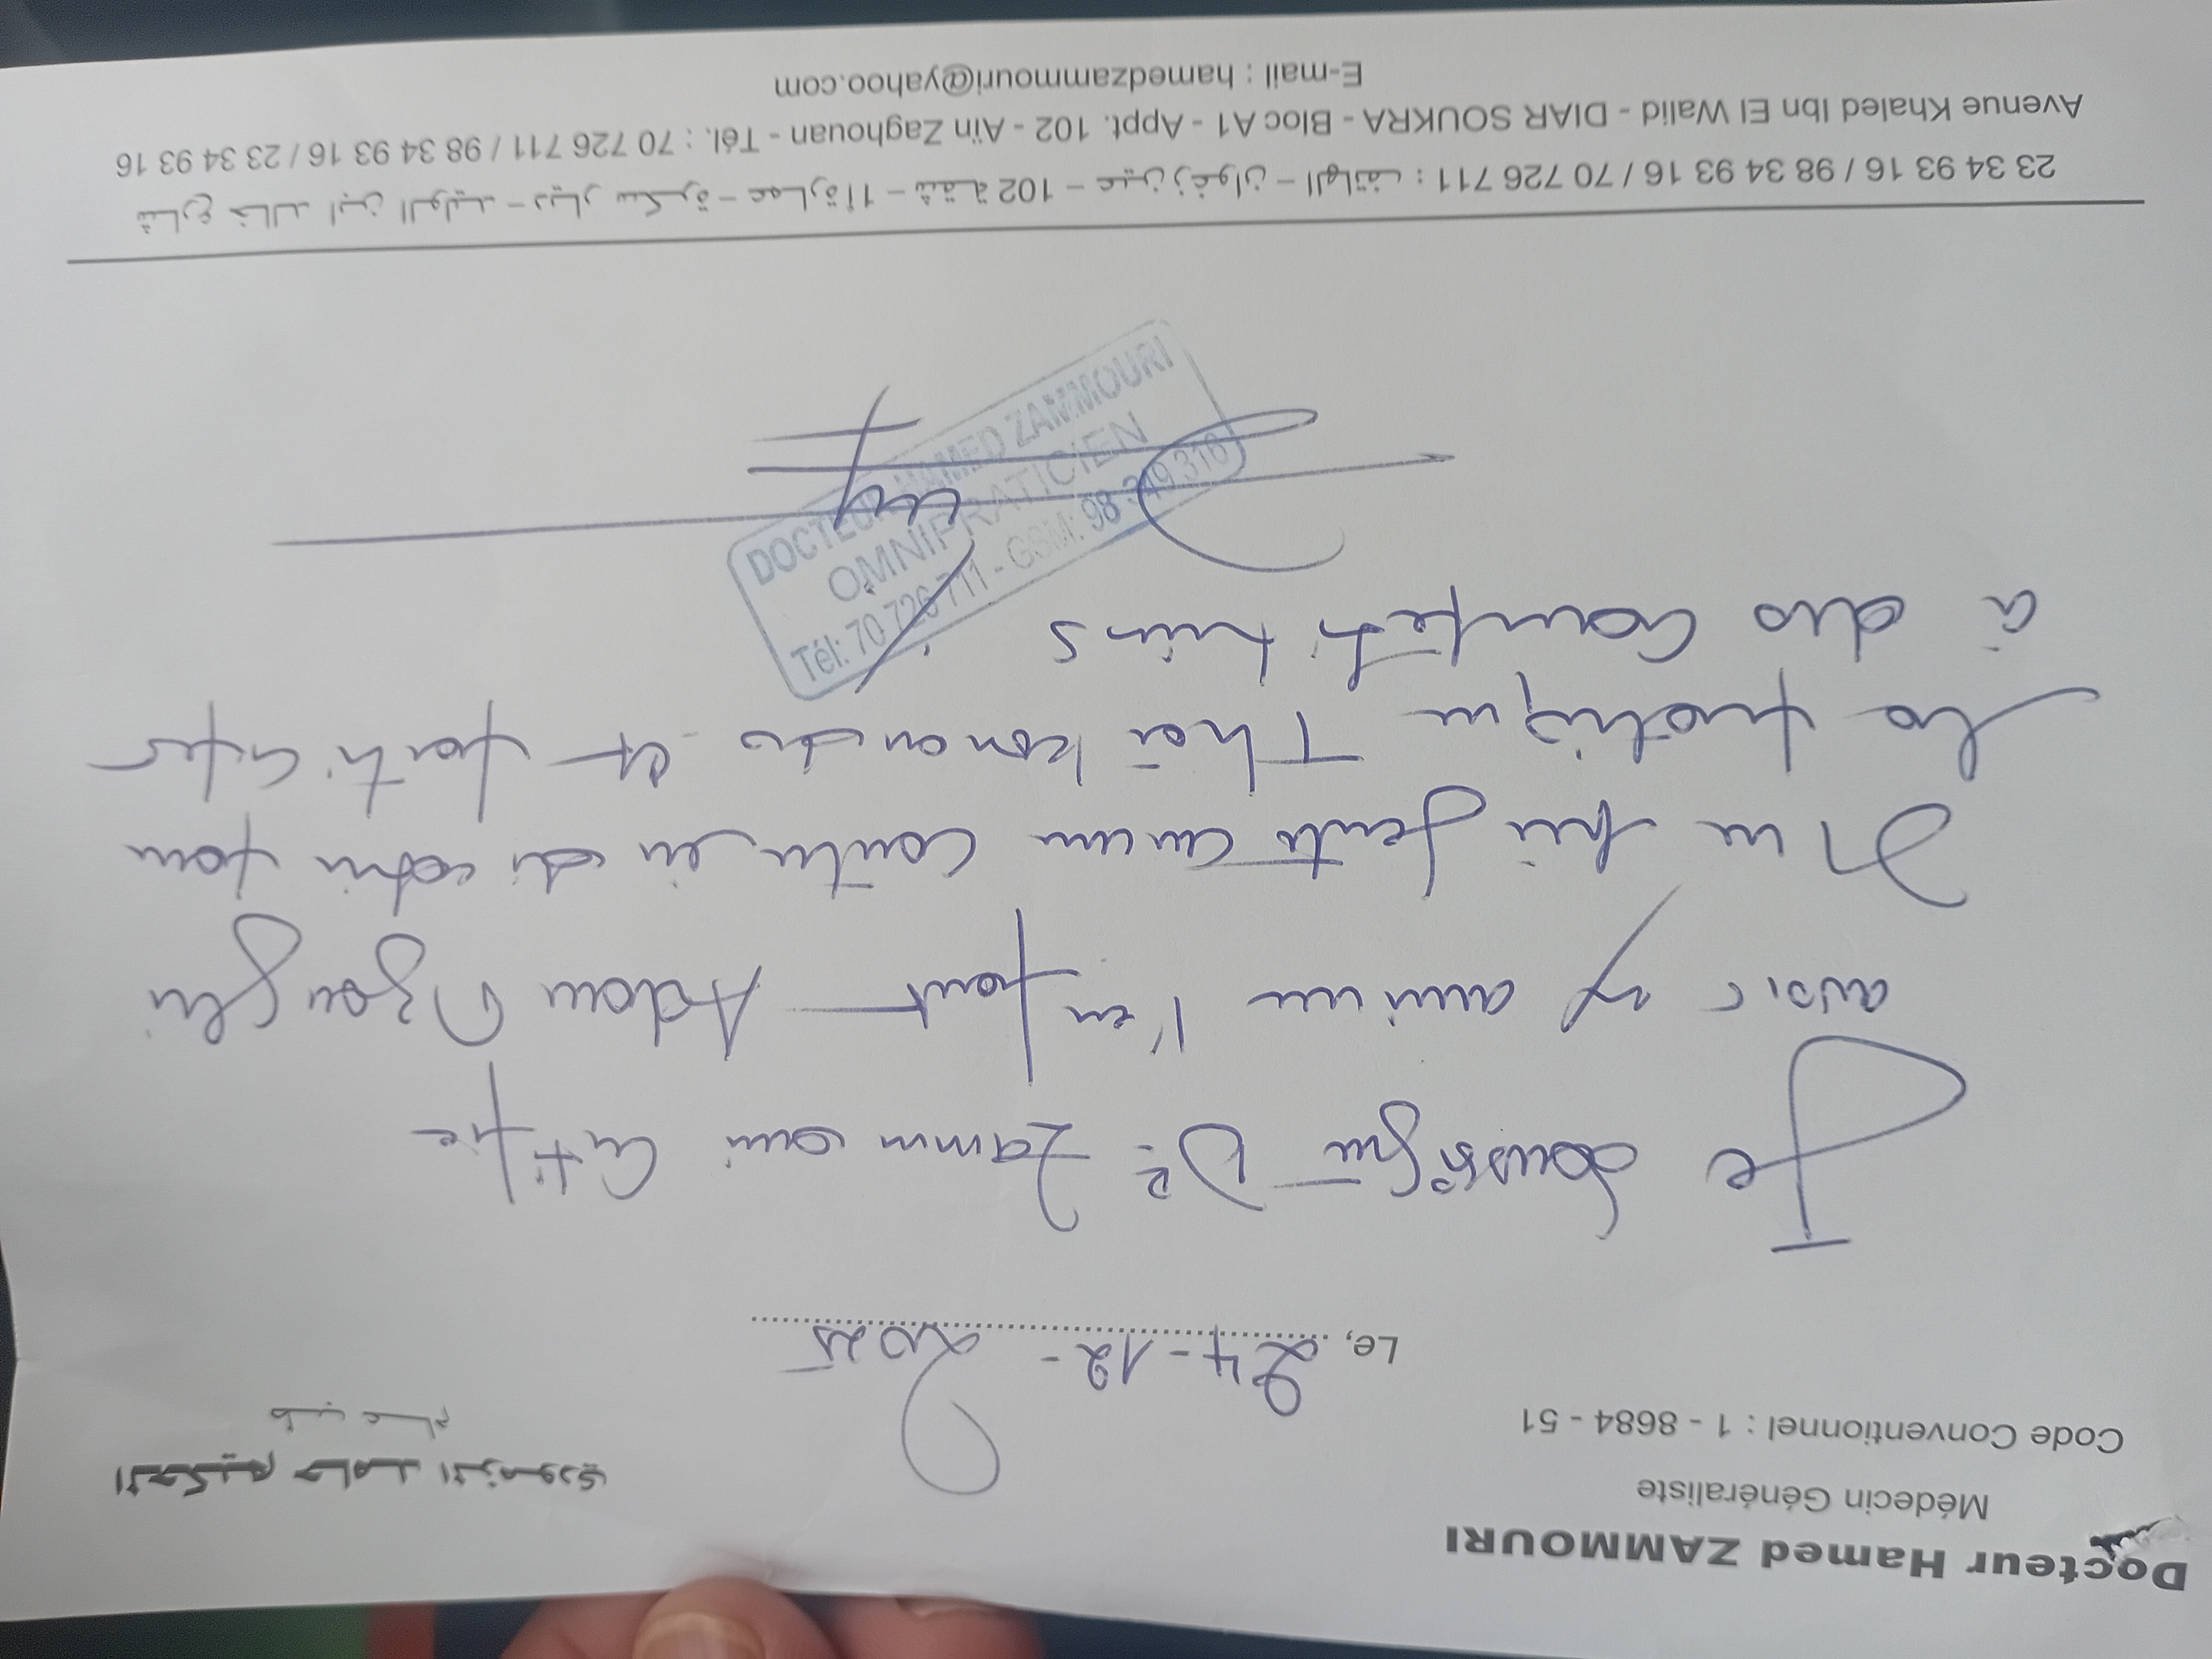 Docteur Hamed ZAMMOURI
Médecin Généraliste
Code Conventionnel : 1 - 8684 - 51
الحكيم حامد الزموري
طب عام
Le, 24-12-2025
Je soussigné Dr Zammouri certifie
avoir examiné l'enfant Adam
Ne présente aucune contre indication pour
la pratique Thai kwondo et participer
à des compétitions
DOCTEUR HAMED ZAMMOURI
OMNIPRATICIEN
Tél: 70 726 711 - GSM: 98 349 316
شارع خالد ابن الوليد - ديار سكرة - عمارة أ1 - شقة 102 - عين زغوان - الهاتف : 711 726 70 / 16 93 34 98 / 16 93 34 23
Avenue Khaled Ibn El Walid - DIAR SOUKRA - Bloc A1 - Appt. 102 - Aïn Zaghouan - Tél. : 70 726 711 / 98 34 93 16 / 23 34 93 16
E-mail : hamedzammouri@yahoo.com